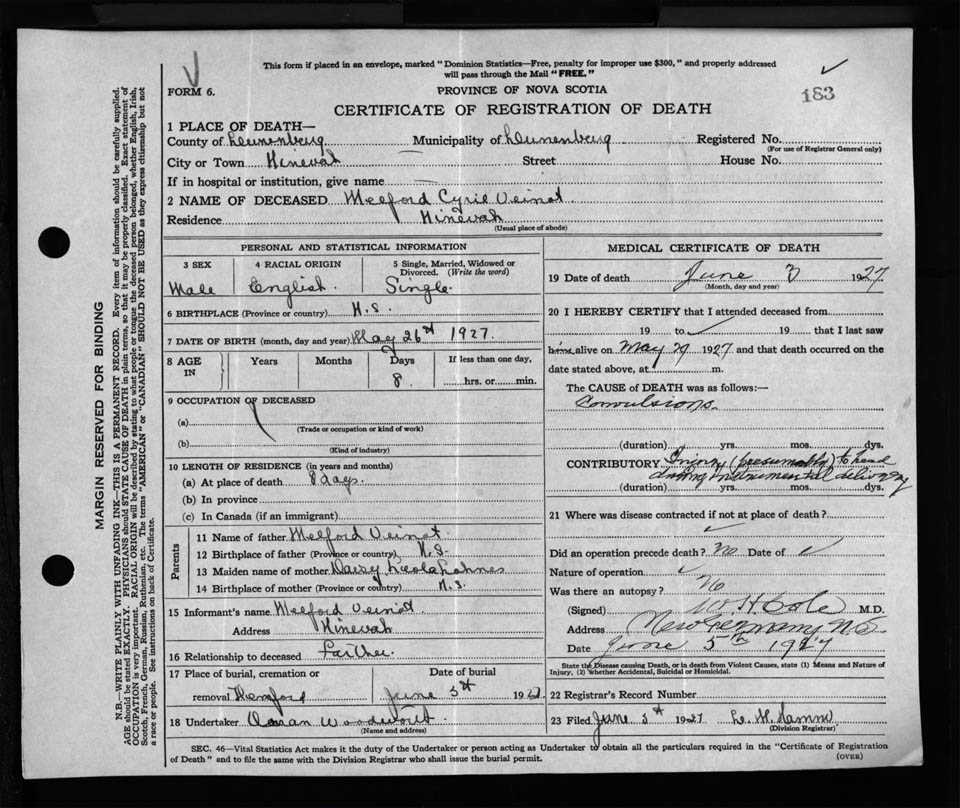 This form if placed in an envelope, marked "Dominion Statistics—Free, penalty for improper use $300," and properly addressed
will pass through the Mail "FREE."
FORM 6.
PROVINCE OF NOVA SCOTIA
183
CERTIFICATE OF REGISTRATION OF DEATH
1 PLACE OF DEATH—
County of Lunenburg Municipality of Lunenburg Registered No.
(For use of Registrar General only)
City or Town Ninevah Street House No.
If in hospital or institution, give name
2 NAME OF DECEASED Melford Cyril Veinot
Residence Ninevah
(Usual place of abode)
PERSONAL AND STATISTICAL INFORMATION
3 SEX 4 RACIAL ORIGIN 5 Single, Married, Widowed or Divorced. (Write the word)
Male English. Single.
6 BIRTHPLACE (Province or country) N.S.
7 DATE OF BIRTH (month, day and year) May 26st 1927.
8 AGE IN Years Months Days If less than one day,
8. hrs. or min.
9 OCCUPATION OF DECEASED
(a)
(Trade or occupation or kind of work)
(b)
(Kind of industry)
10 LENGTH OF RESIDENCE (in years and months)
(a) At place of death 8 days.
(b) In province
(c) In Canada (if an immigrant)
Parents
11 Name of father Melford Veinot
12 Birthplace of father (Province or country) N.S.
13 Maiden name of mother
14 Birthplace of mother (Province or country) N.S.
15 Informant's name Melford Veinot
Address Ninevah
16 Relationship to deceased Faither
17 Place of burial, cremation or removal Hemford
Date of burial June 5st 192
18 Undertaker
(Name and address)
MEDICAL CERTIFICATE OF DEATH
19 Date of death June 3 1927
(Month, day and year)
20 I HEREBY CERTIFY that I attended deceased from
19 to 19 that I last saw
him alive on May 29 1927 and that death occurred on the
date stated above, at m.
The CAUSE of DEATH was as follows:—
Convulsions.
(duration) yrs. mos. dys.
CONTRIBUTORY Injury (presumably) to head
during instrumental delivery
(duration) yrs. mos. dys.
21 Where was disease contracted if not at place of death?
Did an operation precede death? No Date of
Nature of operation
Was there an autopsy? No
(Signed) W H Cole M.D.
Address New Germany N.S.
Date June 5th 1927
State the Disease causing Death, or in death from Violent Causes, state (1) Means and Nature of
Injury, (2) whether Accidental, Suicidal or Homicidal.
22 Registrar's Record Number
23 Filed June 5st 1927
(Division Registrar)
SEC. 46—Vital Statistics Act makes it the duty of the Undertaker or person acting as Undertaker to obtain all the particulars required in the "Certificate of Registration
of Death" and to file the same with the Division Registrar who shall issue the burial permit.
(OVER)
MARGIN RESERVED FOR BINDING
N.B.—WRITE PLAINLY WITH UNFADING INK—THIS IS A PERMANENT RECORD. Every item of information should be carefully supplied.
AGE should be stated EXACTLY. PHYSICIANS should STATE CAUSE OF DEATH in plain terms, so that it may be properly classified. Exact statement of
OCCUPATION is very important. RACIAL ORIGIN will be described by stating to what people or tongue the deceased person belonged, whether English, Irish,
Scotch, French, German, Russian, Ruthenian, etc. The terms "AMERICAN" or "CANADIAN" SHOULD NOT BE USED as they express citizenship but not
a race or people. See instructions on back of Certificate.